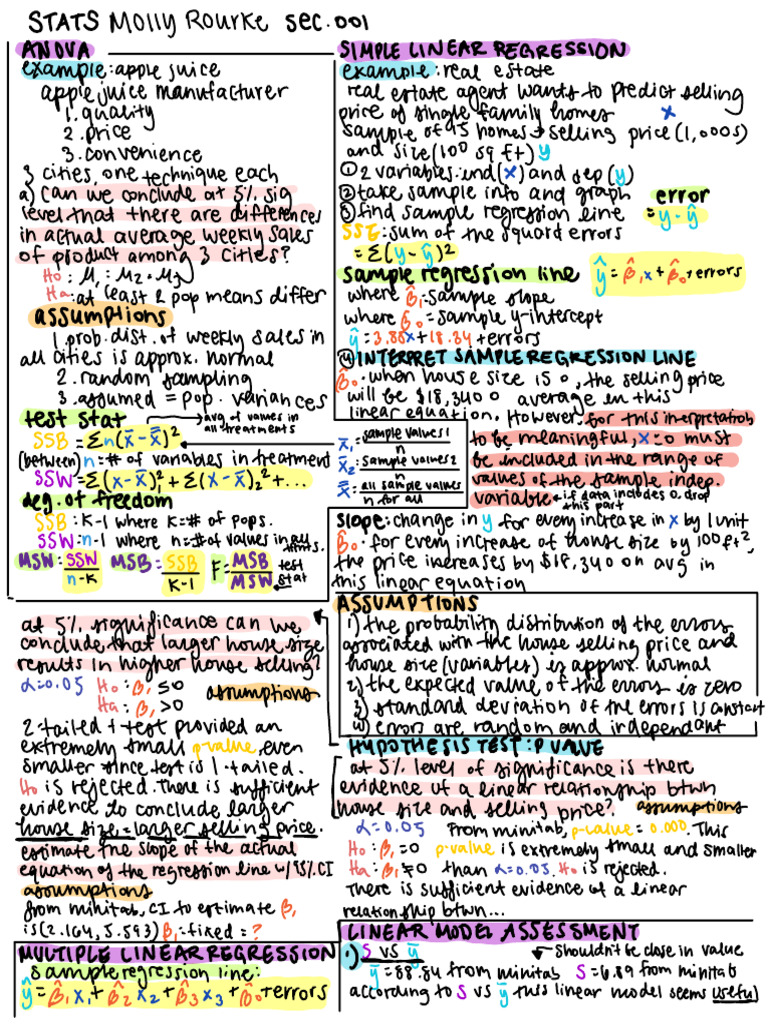 STATS Molly Rourke sec. 001
ANOVA
example: apple juice
apple juice manufacturer
1. quality
2. price
3. convenience
3 cities, one technique each
a) can we conclude at 5% sig
level that there are differences
in actual average weekly sales
of product among 3 cities?
Ho: μ1 = μ2 = μ3
Ha: at least 2 pop means differ
assumptions
1. prob. dist. of weekly sales in
all cities is approx. normal
2. random sampling
3. assumed = pop. variances
test stat
avg of values in
all treatments
SSB = Σn(x̄ - x̿)²
(between) n = # of variables in treatment
SSW = Σ(x - x̄)₁² + Σ(x - x̄)₂² + ...
deg. of freedom
SSB: k-1 where k = # of pops.
SSW: n-1 where n = # of values in all tmts.
MSW: SSW/n-k MSB: SSB/k-1 F = MSB/MSW test stat
SIMPLE LINEAR REGRESSION
example: real estate
real estate agent wants to predict selling
price of single family homes x
sample of 95 homes → selling price (1,000s)
and size (100 sq ft) y
① 2 variables: ind (x) and dep (y)
② take sample info and graph
③ find sample regression line
error
= y - ŷ
SSE: sum of the squard errors
= Σ(y - ŷ)²
sample regression line
ŷ = β̂1x + β̂0 + errors
where β̂1 = sample slope
where β̂0 = sample y-intercept
ŷ = 3.88x + 18.34 + errors
④ INTERPRET SAMPLE REGRESSION LINE
β̂0: when house size is 0, the selling price
will be $18,340 0 average in this
linear equation. However, for this interpretation
to be meaningful, x=0 must
be included in the range of
values of the sample indep.
variable ← if data includes 0, drop
this part
x̄1 = sample values 1/n
x̄2 = sample values 2/n
x̿ = all sample values/n for all
slope: change in y for every increase in x by 1 unit
β̂0: for every increase of house size by 100 ft²,
the price increases by $18,340 on avg in
this linear equation
ASSUMPTIONS
1) the probability distribution of the errors
associated with the house selling price and
house size (variables) is approx. normal
2) the expected value of the errors is zero
3) standard deviation of the errors is constant
4) error are random and independant
HYPOTHESIS TEST: P VALUE
at 5% level of significance is there
evidence of a linear relationship btwn
house size and selling price? assumptions
α=0.05 From minitab, p-value = 0.000. This
Ho: β1=0 p-value is extremely small and smaller
Ha: β1≠0 than α=0.05. Ho is rejected.
There is sufficient evidence of a linear
relationship btwn...
at 5% significance can we
conclude that larger house size
results in higher house selling?
α=0.05 Ho: β1 ≤0
Ha: β1 >0
assumptions
2 tailed t test provided an
extremely small p-value, even
smaller since test is 1-tailed.
Ho is rejected. There is sufficient
evidence to conclude larger
house size = larger selling price.
estimate the slope of the actual
equation of the regression line w/ 95% CI
assumptions
from minitab, CI to estimate β1
is (2.164, 5.593) β1: fixed = ?
MULTIPLE LINEAR REGRESSION
sample regression line:
ŷ = β̂1x1 + β̂2x2 + β̂3x3 + β̂0 + errors
LINEAR MODEL ASSESSMENT
1.) S vs ȳ ← shouldn't be close in value
ȳ = 88.84 from minitab S = 6.89 from minitab
according to S vs ȳ this linear model seems useful